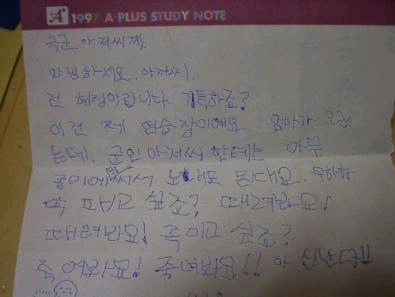 A+ 1997 A-PLUS STUDY NOTE
국군 아저씨께.
안녕하세요. 아저씨.
전 혜정이랍니다. 기특하죠?
이건 제 연습장이예요 엄마가 그러
는데. 군인 아저씨한테는 아무
종이에 써서 보내도 된대요. 우하하
막 패고 싶죠? 때려봐요!
때려봐요! 죽이고 싶죠?
죽여봐요! 죽여봐요!! 아 신난다!!